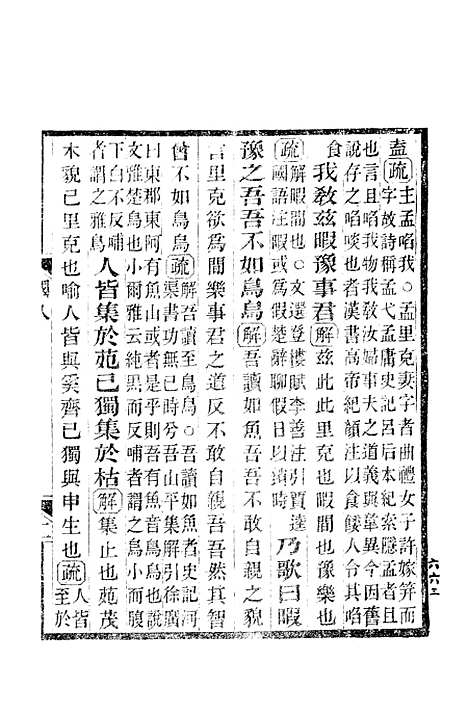 盍〔疏〕主孟啗我○孟里克妻字者曲禮女子許嫁笄而
字故詩稱孟弋孟庸史記呂后本紀索隱孟者且
也言且啗我物我敎汝婦事夫之道義與韋異今因舊
說存之啗啖也者漢書高帝紀顏注以食餧人令其啗
食我敎茲暇豫事君〔解〕茲此此里克也暇閒也豫樂也
〔疏〕解暇閒也○文選登樓賦李善注引賈逵
國語注暇或爲假楚辭聊假日以須時乃歌曰暇
豫之吾吾不如鳥烏〔解〕吾讀如魚吾吾不敢自親之貌
言里克欲爲閒樂事君之道反不敢自親吾吾然其智
曾不如鳥烏〔疏〕解吾讀至鳥烏○吾讀如魚者史記河
渠書功無已時兮吾山平集解引徐廣
曰東郡東阿有魚山或者是乎則吾有魚音鳥烏也說
文雅楚烏也小爾雅云純黑而反哺者謂之烏小而腹
下白不反哺
者謂之雅烏人皆集於苑己獨集於枯〔解〕集止也苑茂
木貌己里克也喻人皆與奚齊己獨與申生也〔疏〕人皆
至於
六六三